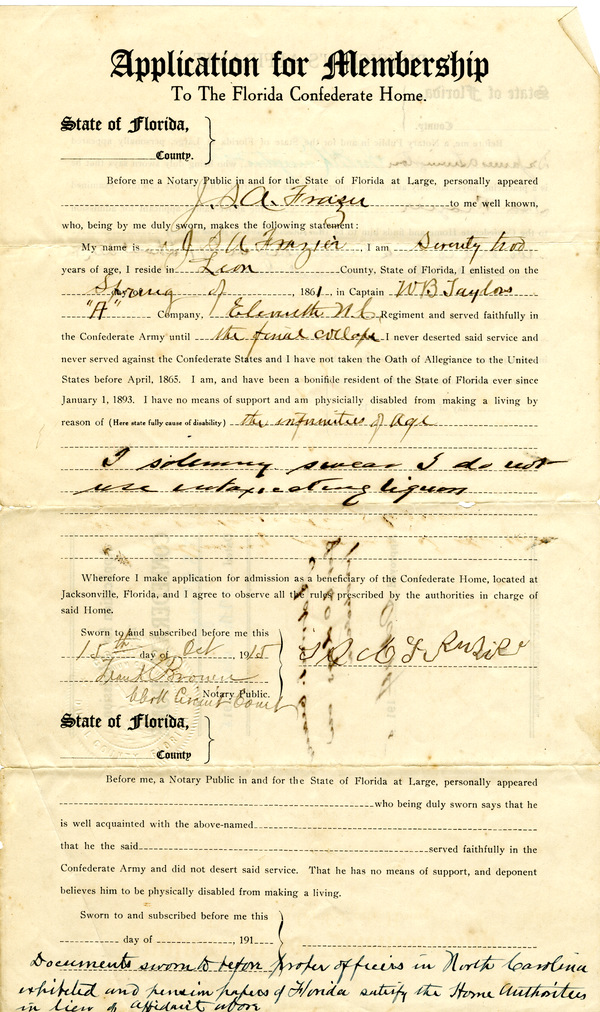 Application for Membership
To The Florida Confederate Home.
State of Florida,
County.
Before me a Notary Public in and for the State of Florida at Large, personally appeared
J. S. A. Frazier to me well known,
who, being by me duly sworn, makes the following statement:
My name is J S A Frazier, I am Seventy two
years of age, I reside in Leon County, State of Florida, I enlisted on the
Spring of, 1861, in Captain W B Taylors
"A" Company, Eleventh N.C. Regiment and served faithfully in
the Confederate Army until the final collaps I never deserted said service and
never served against the Confederate States and I have not taken the Oath of Allegiance to the United
States before April, 1865. I am, and have been a bonifide resident of the State of Florida ever since
January 1, 1893. I have no means of support and am physicially disabled from making a living by
reason of (Here state fully cause of disability) the infirmities of age
I solemny swear I do not
use intoxicating liquors
Wherefore I make application for admission as a beneficiary of the Confederate Home, located at
Jacksonville, Florida, and I agree to observe all the rules prescribed by the authorities in charge of
said Home.
Sworn to and subscribed before me this
15th day of Oct, 1915
Frank Brown
Notary Public.
Clerk Circuit Court
State of Florida,
County
Before me, a Notary Public in and for the State of Florida at Large, personally appeared
who being duly sworn says that he
is well acquainted with the above-named
that he the said served faithfully in the
Confederate Army and did not desert said service. That he has no means of support, and deponent
believes him to be physically disabled from making a living.
Sworn to and subscribed before me this
day of , 191
Documents sworn to before proper officers in North Carolina
exhibited and pension papers of Florida satisfy the Home Authorities
in lieu of Affidavit above